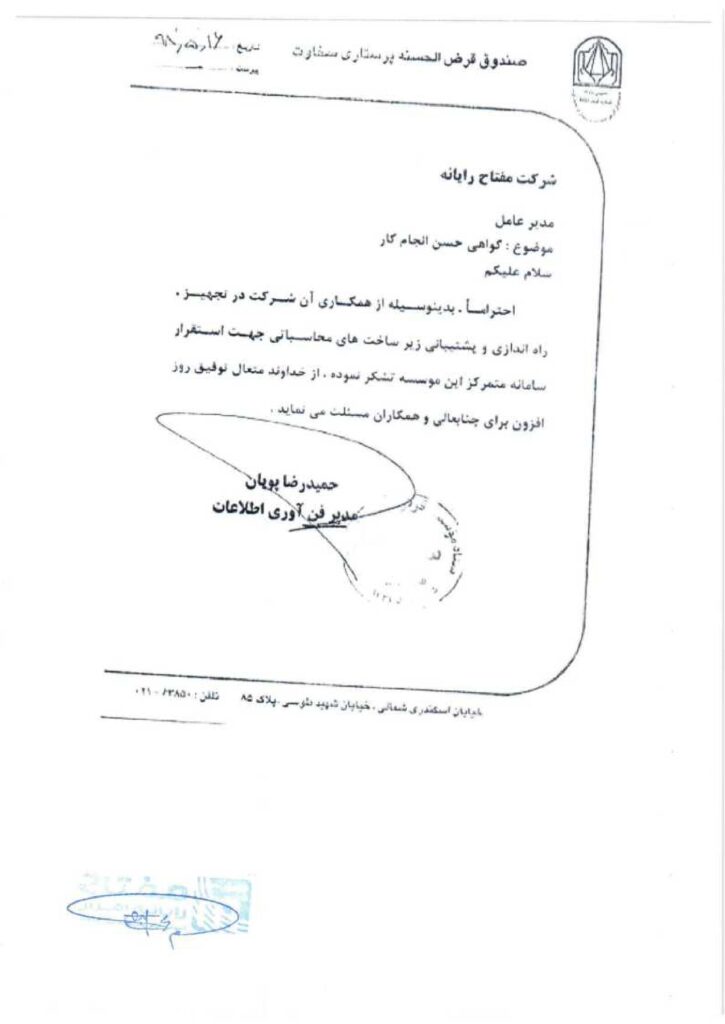 صندوق قرض الحسنه پرستاری سخاوت
تاریخ:
پیوست:
شرکت مفتاح رایانه
مدیر عامل
موضوع : گواهی حسن انجام کار
سلام علیکم
احتراماً ، بدینوسیله از همکاری آن شرکت در تجهیز ،
راه اندازی و پشتیبانی زیر ساخت های محاسباتی جهت استقرار
سامانه متمرکز این موسسه تشکر نموده ، از خداوند متعال توفیق روز
افزون برای جنابعالی و همکاران مسئلت می نماید .
حمیدرضا پویان
مدیر فن آوری اطلاعات
خیابان اسکندری شمالی ، خیابان شهید طوسی ،پلاک ۸۵ تلفن : ۶۳۸۵۰ - ۰۲۱